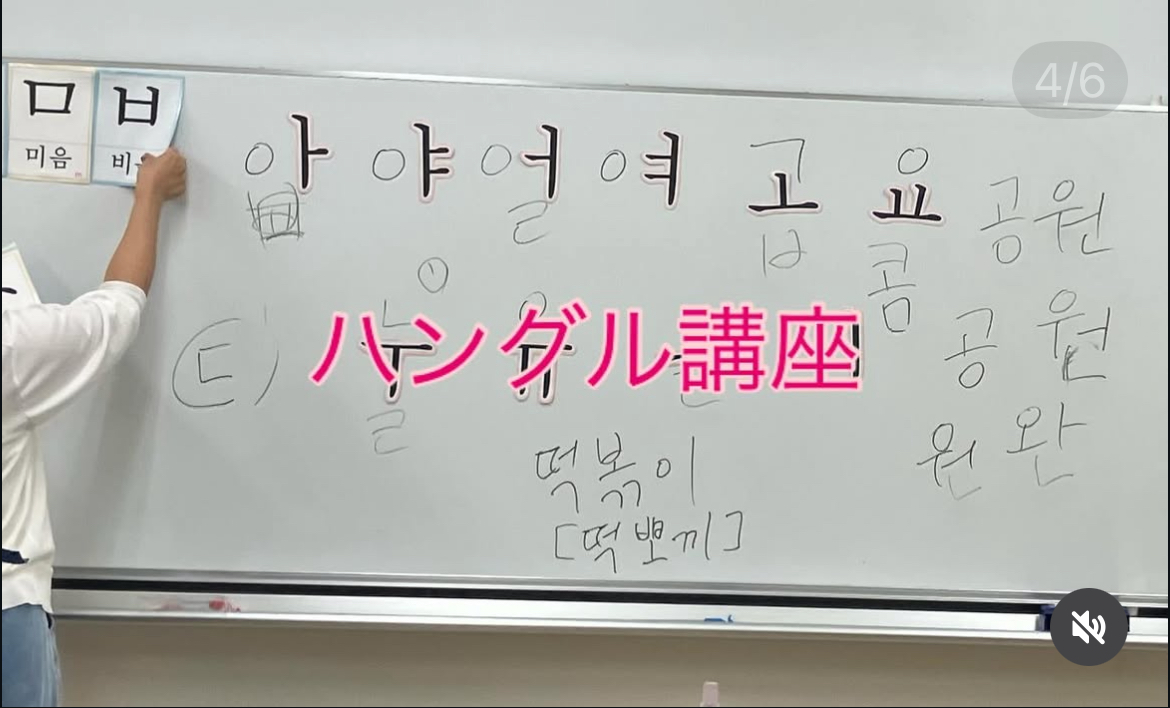 4/6
ㅁ ㅂ
미음
아 야 어 여 고 요 공원
ㄹ ㅂ 콤
ㅇ
ハングル講座
ㄷ 공 원
ㄹ
원 완
떡볶이
[떡뽀끼]